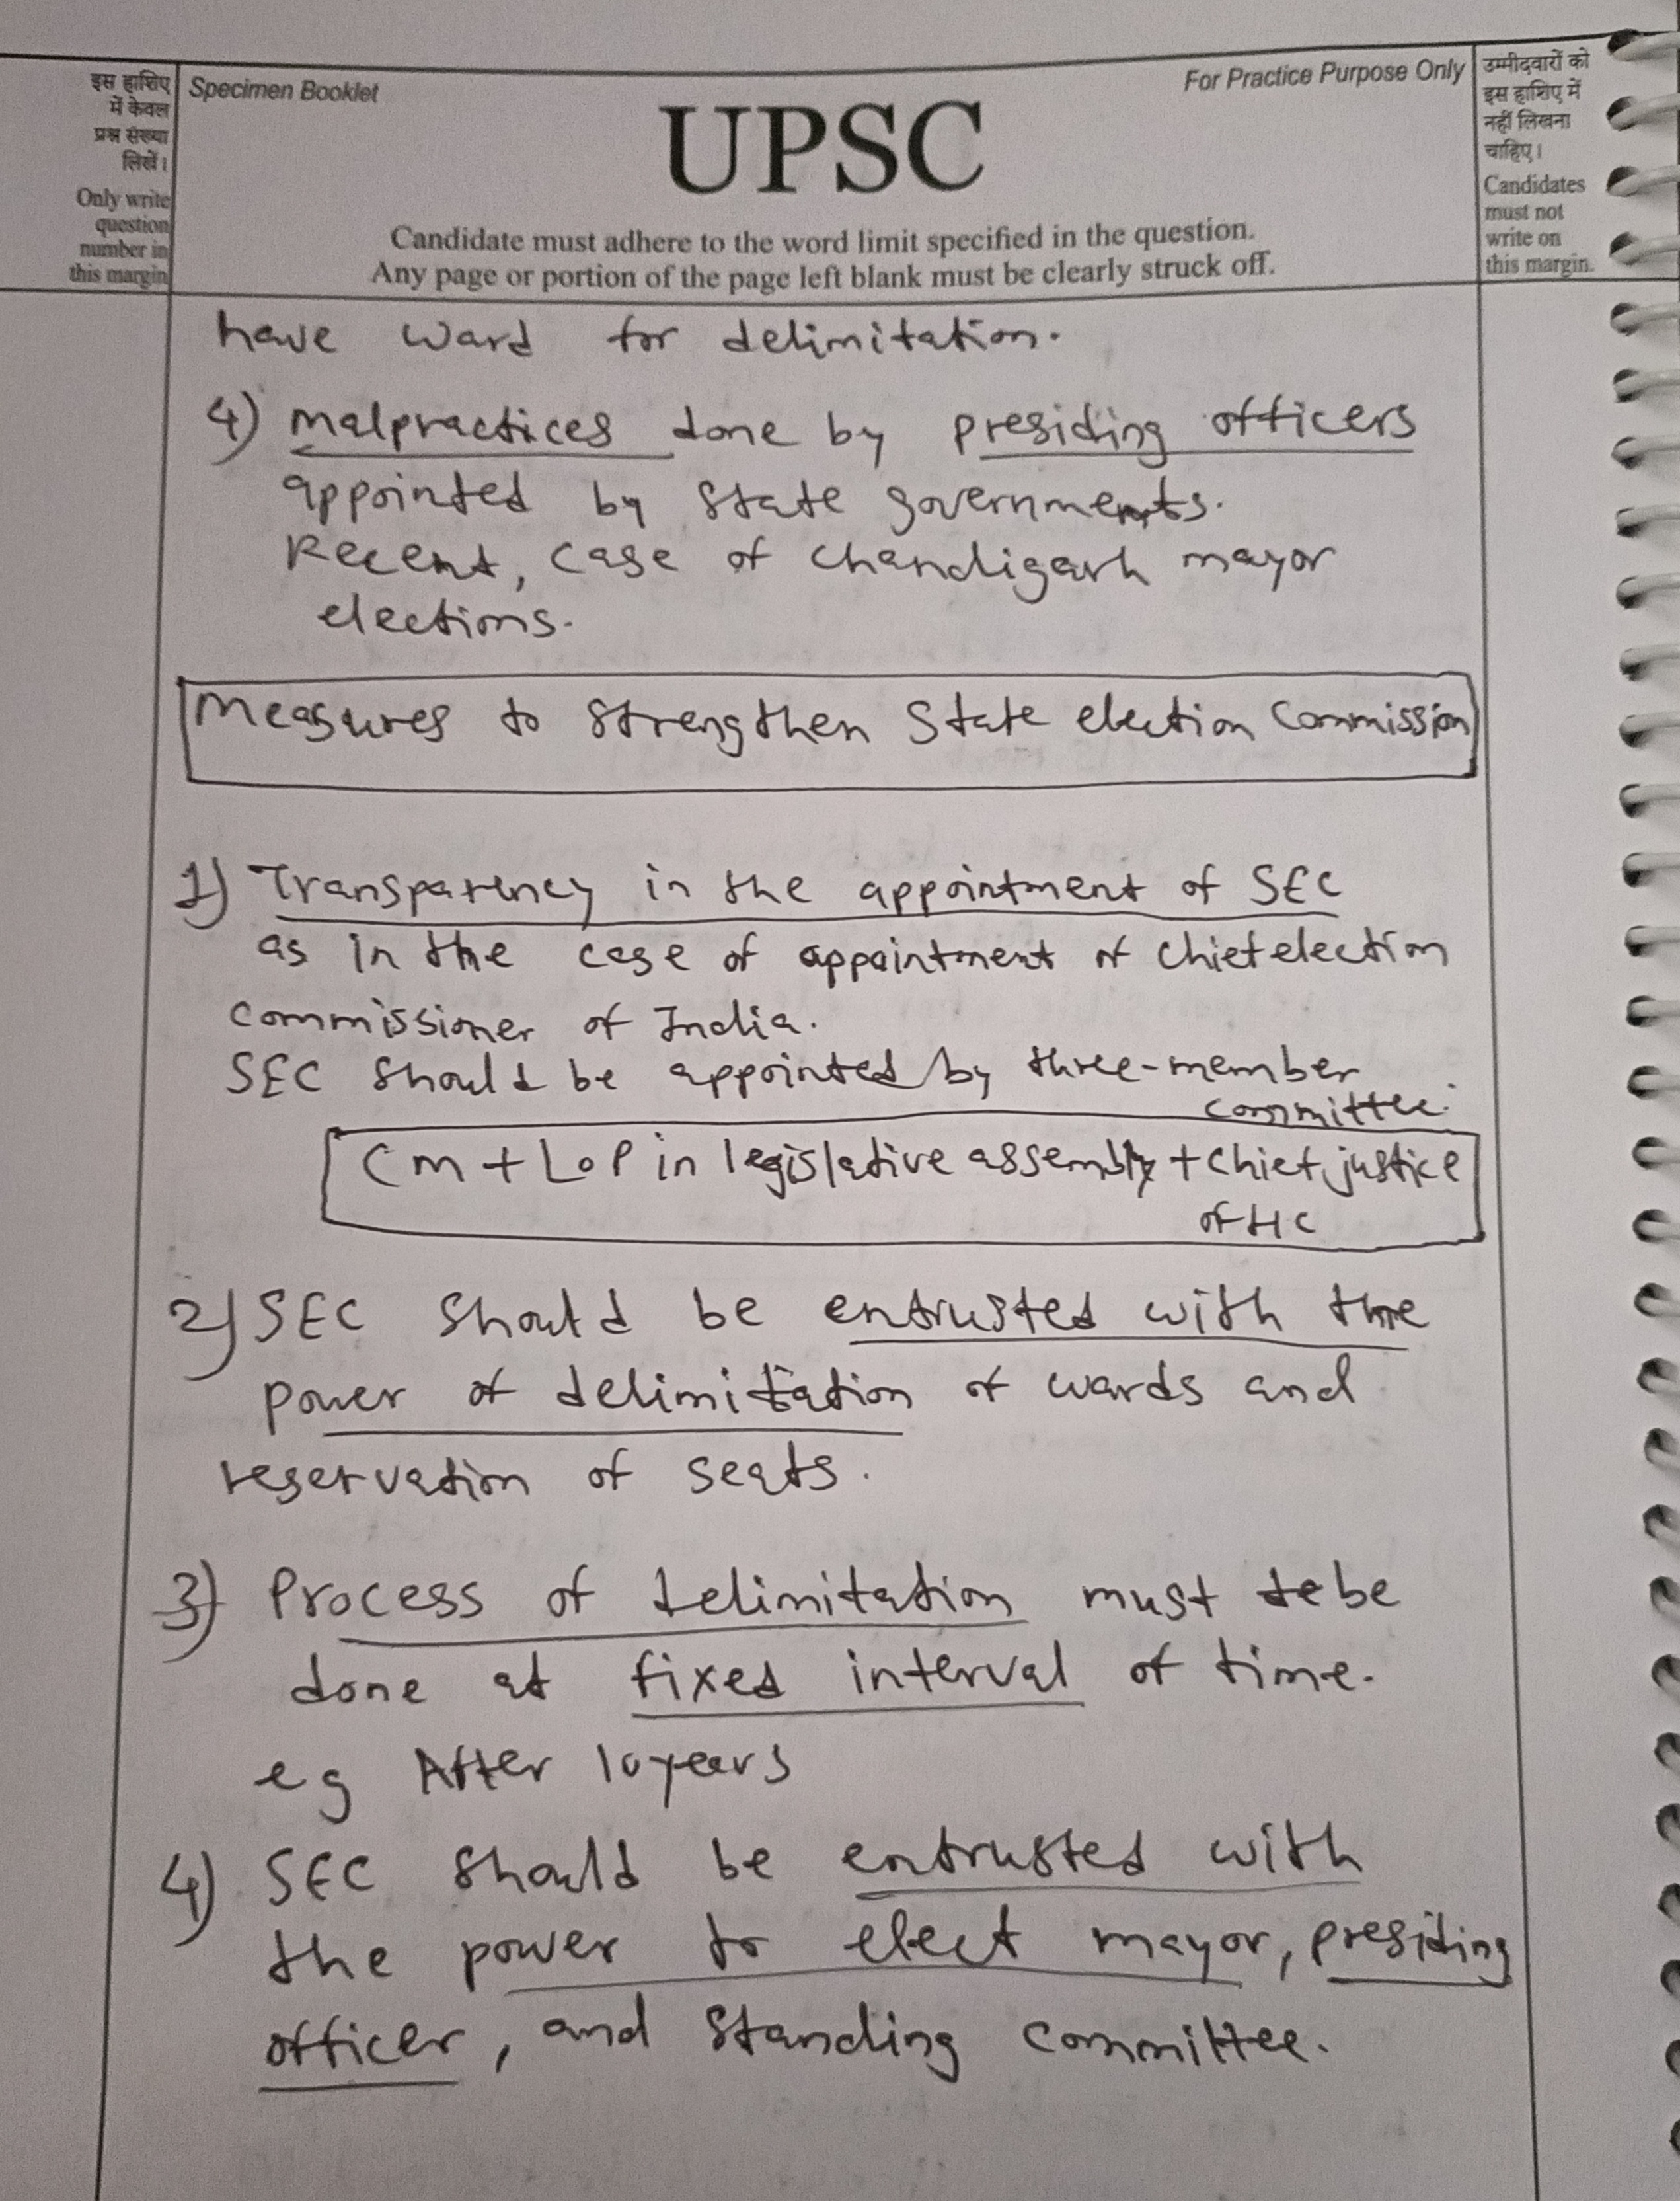 इस हाशिए
में केवल
प्रश्न संख्या
लिखें।
Only write
question
number in
this margin
Specimen Booklet
For Practice Purpose Only
UPSC
Candidate must adhere to the word limit specified in the question.
Any page or portion of the page left blank must be clearly struck off.
उम्मीदवारों को
इस हाशिए में
नहीं लिखना
चाहिए।
Candidates
must not
write on
this margin.
have ward for delimitation.
4) malpractices done by presiding officers
appointed by State governments.
Recent, case of Chandigarh mayor
elections.
Measures to strengthen State election Commission
1) Transparency in the appointment of SEC
as in the case of appointment of Chief election
commissioner of India.
SEC should be appointed by three-member
committee.
Cm + LoP in legislative assembly + Chief justice
of HC
2) SEC should be entrusted with the
power of delimitation of wards and
reservation of seats.
3) Process of delimitation must be
done at fixed interval of time.
eg After 10 years
4) SEC should be entrusted with
the power to elect mayor, presiding
officer, and Standing committee.